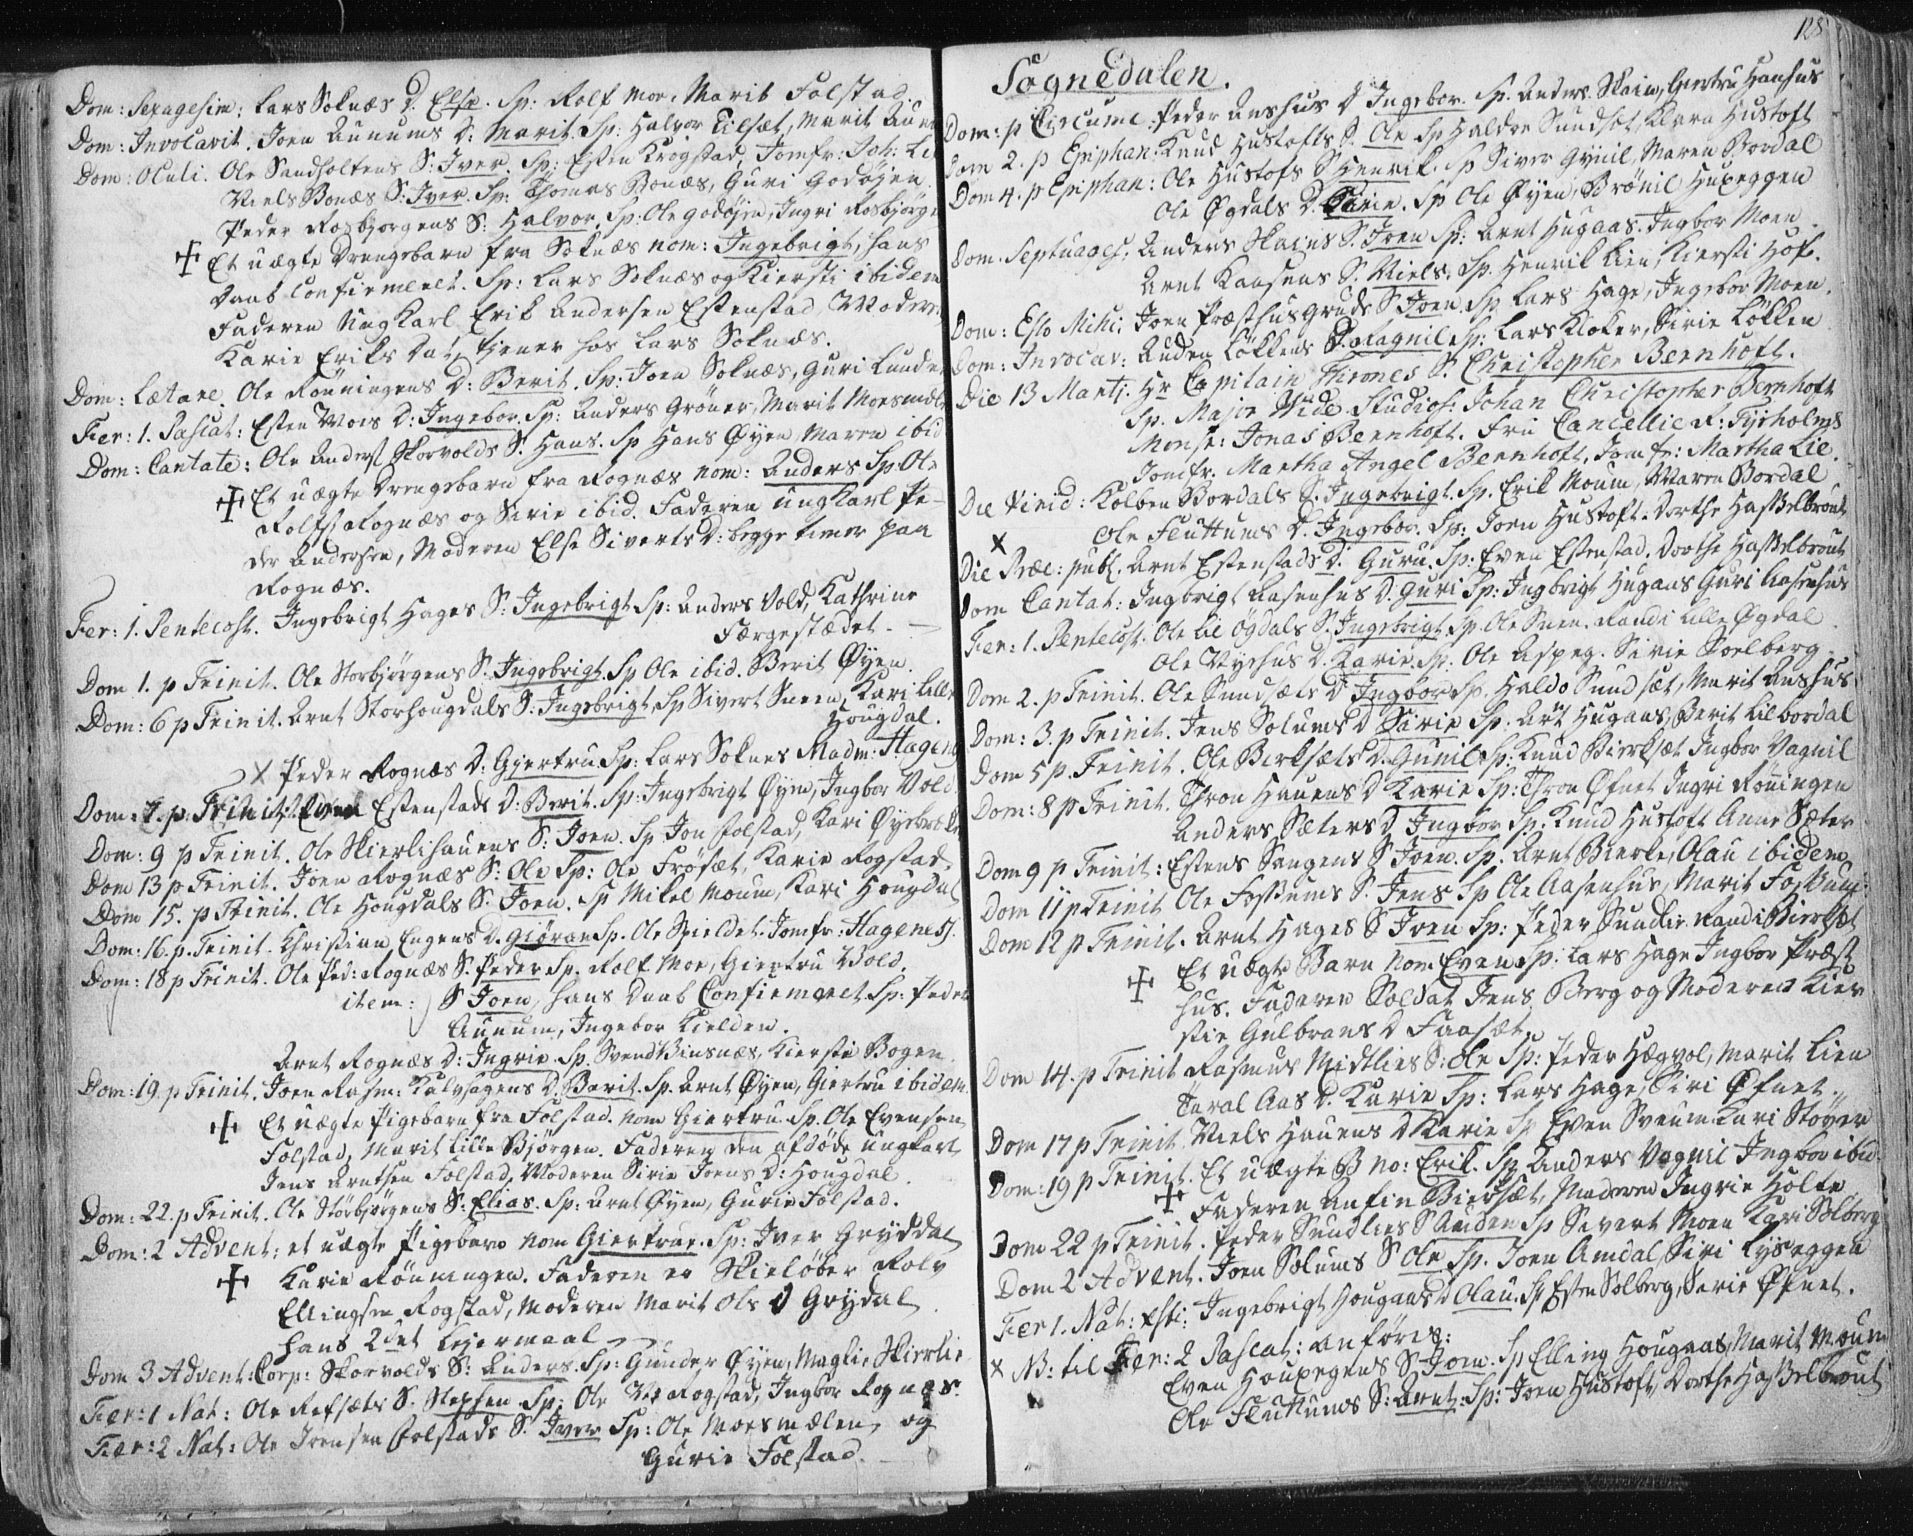 Dom: Sexagesim: Lars Soknæs D. Else. Sp: Rolf Moe. Marit Folstad.
Dom: Invocavit. Joen Aunums D: Marit. Sp: Halvor Lilset, Marit Aunu
Dom: Oculi. Ole Sandholtens S: Iver. Sp: Esten Krogstad, Jomfr: Joh: Li
Niels Bonæs S: Iver. Sp: Thomas Bonæs, Guri Godøyen.
Peder Rosbjørgens S: Halvor. Sp: Ole Godøyen, Ingri Rosbjørge
Et uægte Drengebarn fra Soknæs nom: Ingebrigt, hans
Daab Confirmeret. Sp: Lars Soknæs og Kiersti ibidem
Faderen Ungkarl Erik Andersen Estenstad, Moderen
Karie Eriks Dat, tjener hos Lars Soknæs.
Dom: Lætare. Ole Rønningens D: Berit. Sp: Joen Soknæs, Guri Lunde
Fer: 1. Pascat: Esten Moes D: Ingebor. Sp: Anders Grøner, Marit Moesmæl
Dom: Cantate: Ole Anders Skorvolds S. Hans. Sp Hans Øyen, Maren ibid
Et uægte Drengebarn fra Rognæs nom: Anders Sp Ole
Rolfs Rognæs og Sirie ibid. Faderen ungkarl Pe-
der Andersen, Moderen Else Siverts D: begge tiener paa
Rognæs.
Fer: 1. Pentecost. Ingebrigt Hages S: Ingebrigt Sp: Anders Vold, Kathrine
Færgestædet.
Dom 1. p Trinit. Ole Storbjørgens S. Ingebrigt. Sp Ole ibid. Berit Øyen.
Dom: 6 p Trinit. Arnt Storhougdals S: Ingebrigt Sp Sivert Sneen, Kari Lille
Hougdal.
X Peder Rognæs D: Gjertru Sp: Lars Soknes Madm: Hagenes
Dom: 7. p: Trinit. Even Estenstads D: Berit. Sp: Ingebrigt Øyen, Ingbor Vold.
Dom: 9 p Trinit. Ole Skierlihauens S: Joen. Sp Jon Folstad, Kari
Dom 13 p Trinit. Joen Rognæs S: Ole Sp: Ole Frøset, Karie Rogstad.
Dom 15. p Trinit. Ole Hougdals S. Joen. Sp Mikel Moum, Kari Hougdal
Dom: 16. p. Trinit. Christian Engens D. Giøran Sp. Ole Jomfr: Hagenes.
Dom: 18 p Trinit. Ole Ped: Rognæs S. Peder Sp. Rolf Moe, Giertru Vold.
item: S Joen, hans Daab Confirmeret Sp: Peder
Aunum, Ingebor Kielden.
Arnt Rognæs D: Ingrie Sp. Svend Binsnæs, Kiersti Bogen.
Dom: 19. p Trinit. Joen Rasm: Kalvhagens D. Berit. Sp. Arnt Øyen, Giertru ibidem.
Et uægte Pigebarn fra Folstad. nom Giertru. Sp. Ole Evensen
Folstad, Marit Lille Bjørgen. Faderen den afdøde ungkarl
Jens Arntsen Folstad, Moderen Sirie Joens D: Hougdal.
Dom: 22. p Trinit. Ole Storbjørgens S: Elias. Sp: Arnt Øyen, Gurie Folstad.
Dom: 2 Advent: et uægte Pigebarn nom Giertrue. Sp: Iver Gryddal
Karie Rønningen. Faderen er Skieløber Rolv
Ellingsen Rogstad, Moderen Marit Ols D Grydal
hans 2det Leyermaal
Dom 3 Advent: Corp: Skorvolds S: Anders. Sp: Gunder Øyen, Magli Skierlie
Fer: 1 Nat: Ole Refsæts S. Stephen Sp: Ole Rogstad, Ingbor Rognæs.
Fer: 2 Nat: Ole Joensen Folstads S. Iver Sp: Ole Moesmælen, og
Gurie Folstad.
128
Sognedalen.
Dom: p Circumc: Peder Aushus D Ingebor. Sp. Anders Skain, Giertru Hanshus
Dom 2. p Epiphan: Knud Hustofts S. Ole Sp Haldor Sundset, Klara Hustoft
Dom 4. p Epiphan: Ole Hustofs S Henrik. Sp Siver Gynil, Maren Bordal
Ole Øgdals D. Karie. Sp Ole Øyen, Brønil Hupeggen
Dom. Septuages: Anders Skains S. Joen Sp: Arnt Hugaas. Ingbor Moen.
Arnt Kaasens S. Niels. Sp. Henrik Lien, Kiersti Hof.
Dom: Esto Mihi: Joen Præsthusgruds S Joen Sp Lars Hage, Ingebor Moen.
Dom: Invocav: Auden Løkkens D. Ragnil Sp: Lars Kloker, Sirie Løkken
Die 13 Martj. Hr Capitain Thrones S Christopher Bernhoft.
Sp. Major Vide. Studios: Johan Christopher Bernhoft
Monsr: Jonas Bernhoft. Fru Cancellie R: Tyrholms
Jomfr. Martha Angel Bernhoft, Jomfr: Martha Lie.
Die Virid: Kolben Bordals S. Ingebrigt. Sp. Erik Moum, Maren Bordal
X Ole Fluttums D. Ingebor. Sp: Joen Hustoft. Dorthe Hasselbrout
Die Præc: publ. Arnt Estenstads D. Guru. Sp: Even Estenstad. Dorthe Hasselbrout
Dom Cantat: Ingbrigt Aasenhus D. Guri Sp: Ingbrigt Hugaas Guri Aasenhus
Fer: 1. Pentecost. Ole Lie Øgdals S. Ingebrigt Sp Ole Snen. Randi Lille Øgdal.
Ole Nyehus D. Karie. Sp: Ole Aspeg. Sirie Soelberg.
Dom 2. p Trinit. Ole Sundsæts D Ingbor Sp. Haldo Sundsæt, Marit Aushus
Dom: 3. p Trinit. Jens Solums D Sirie Sp. Art Hugaas, Berit Lilbordal
Dom 5 p. Trinit. Ole Birksæts D. Gunil Sp: Knud Bierksæt Ingbor Vagnil
Dom: 8 p Trinit. Thron Hauens D Karie Sp: Thron Øfnet Ingri Rønningen
Anders Sæters D Ingbor Sp: Knud Hustoft Anne Sæter
Dom 9 p Trinit: Estens Saugens S Joen. Sp. Arnt Bierke, Olau ibidem
Dom 11 p Trinit Ole Fossums S. Jens Sp Ole Aasenhus, Marit Fossum.
Dom 12 p Trinit. Arnt Hages S Joen Sp: Peder Sundlie Randi Bierksæt
Et uægte Barn nom Even Sp. Lars Hage Ingbor Præst
hus. Faderen Soldat Jens Berg og Moderen Kier
stie Gulbrans D Faasæt.
Dom 14. p Trinit Rasmus Midtlies S: Ole Sp: Peder Hægvol, Marit Lien
Taral Aas D. Karie Sp: Lars Hage, Siri Øfnet.
Dom 17 p Trinit Niels Hauens D Karie Sp Even Sveum Kari Støver
Dom: 19 p Trinit. Et uægte B no: Erik. Sp Anders Vagnil Ingbor ibid.
Faderen Anfin Bierksæt, Moderen Ingrie Holte
Dom 22 p Trinit. Peder Sundlies S Auden Sp Sivert Moen Kari Solberg
Dom 2 Advent. Joen Solums S Ole Sp. Joen Amdal, Siri Kyseggen
Fer 1. Nat: Xsti: Ingebrigt Hougaas D Olau. Sp Esten Solberg, Sirie Øfnet.
X NB: til Fer: 2 Pascat: anføris:
Even Houpegens S. Jom. Sp Elling Hougaas, Marit Moum
Ole Fluttums S: Arnt: Sp: Joen Hustoft, Dorthe Hasselbrout